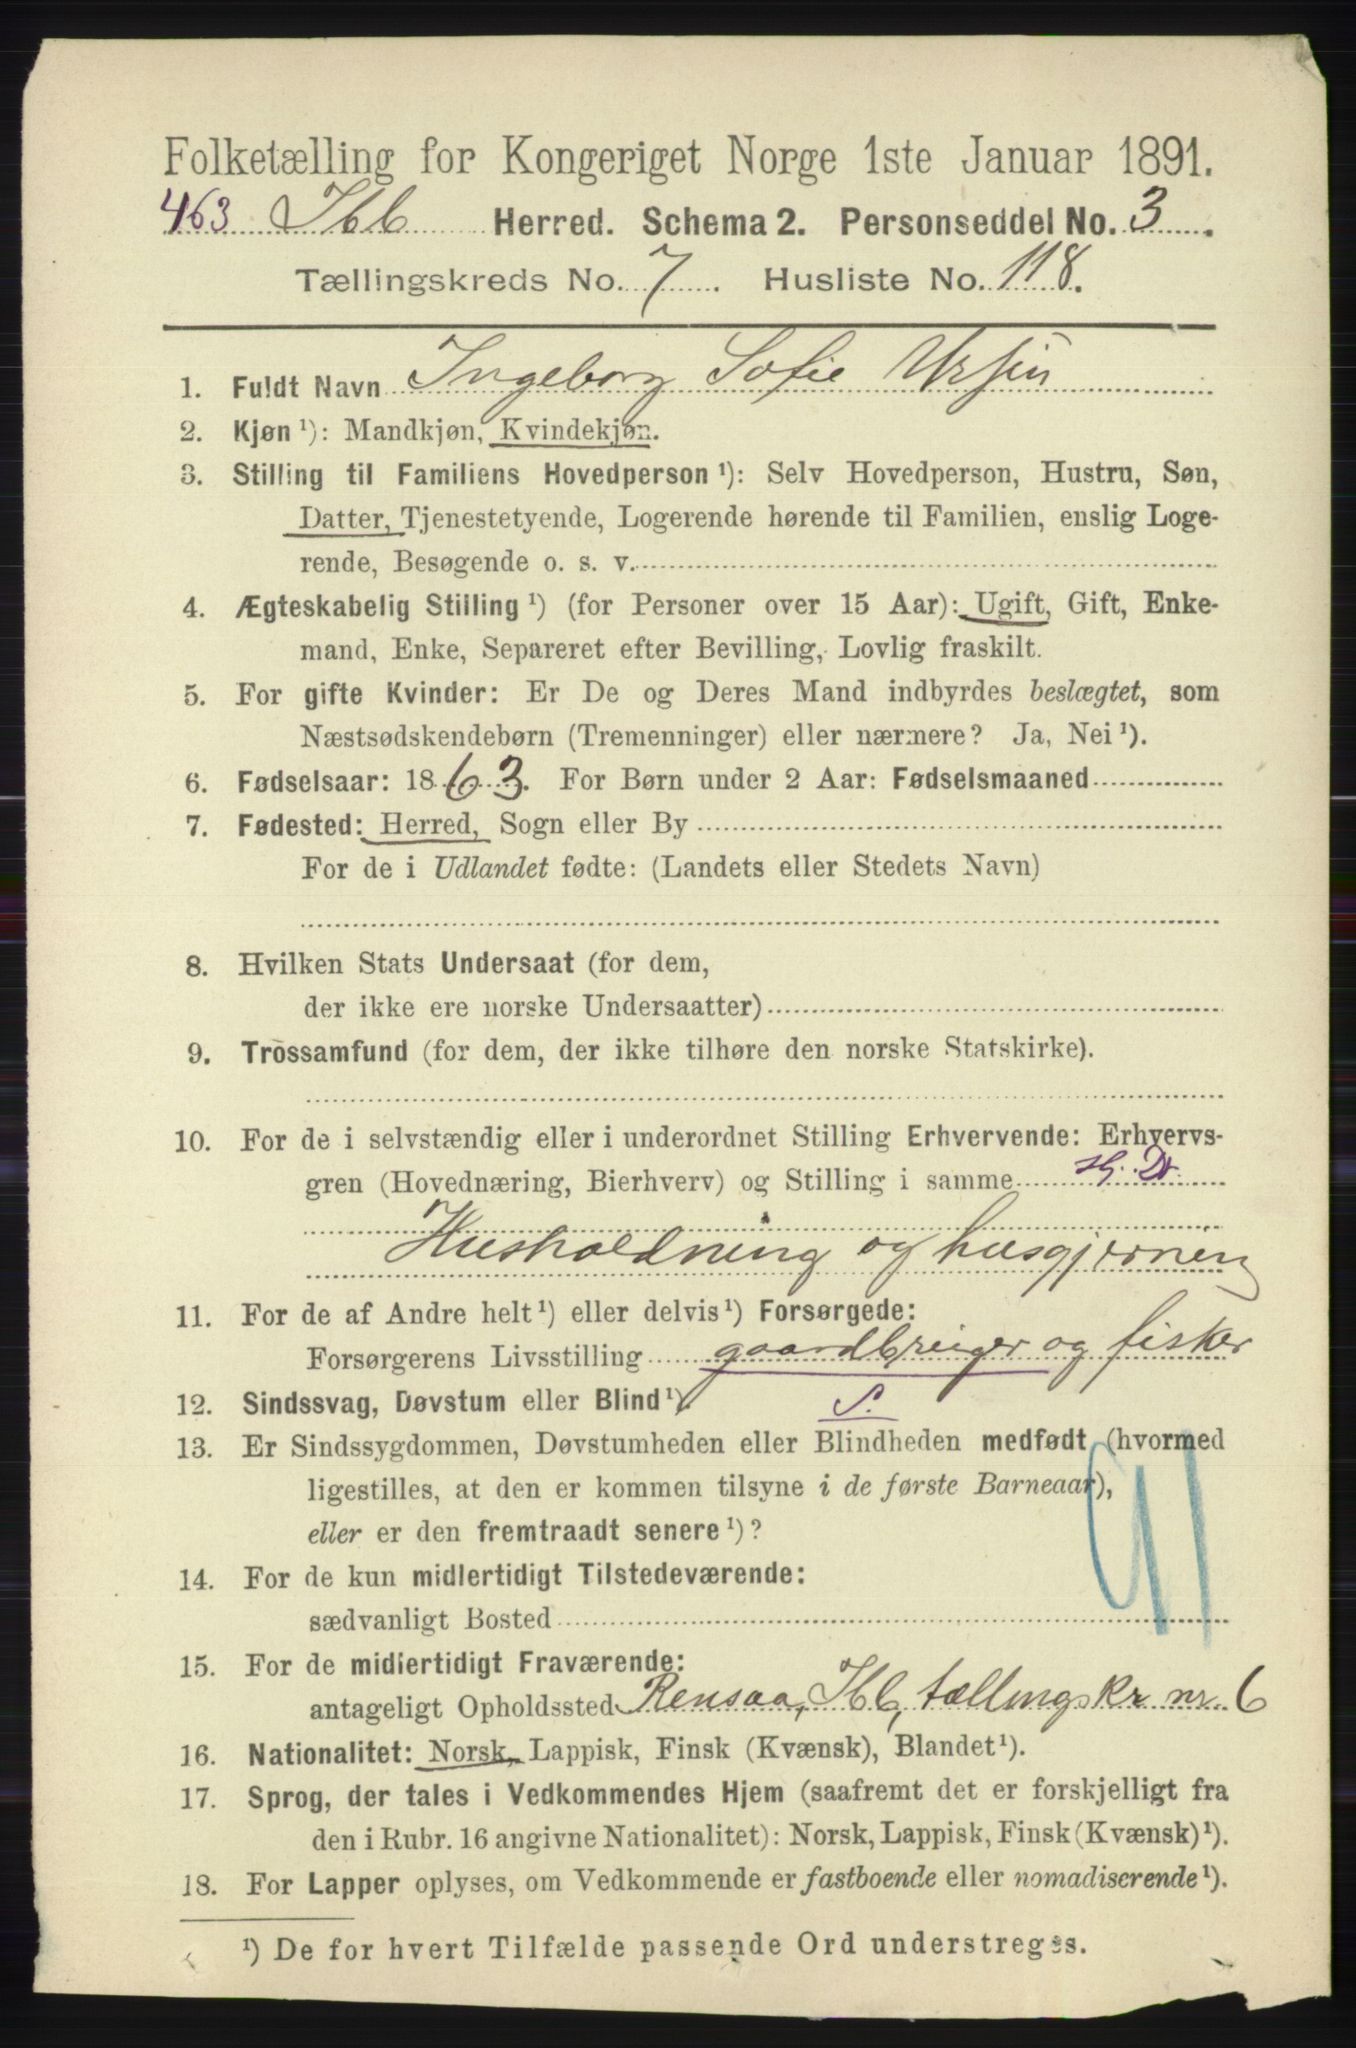 Folketælling for Kongeriget Norge 1ste Januar 1891.
463 Ibb Herred. Schema 2. Personseddel No. 3.
Tællingskreds No. 7. Husliste No. 118.
1. Fuldt Navn Ingeborg Sofie Ursin
2. Kjøn ¹): Mandkjøn, Kvindekjøn.
3. Stilling til Familiens Hovedperson ¹): Selv Hovedperson, Hustru, Søn,
Datter, Tjenestetyende, Logerende hørende til Familien, enslig Loge-
rende, Besøgende o. s. v.
4. Ægteskabelig Stilling ¹) (for Personer over 15 Aar): Ugift, Gift, Enke-
mand, Enke, Separeret efter Bevilling, Lovlig fraskilt.
5. For gifte Kvinder: Er De og Deres Mand indbyrdes beslægtet, som
Næstsødskendebørn (Tremenninger) eller nærmere? Ja, Nei ¹).
6. Fødselsaar: 1863. For Børn under 2 Aar: Fødselsmaaned
7. Fødested: Herred, Sogn eller By
For de i Udlandet fødte: (Landets eller Stedets Navn)
8. Hvilken Stats Undersaat (for dem,
der ikke ere norske Undersaatter)
9. Trossamfund (for dem, der ikke tilhøre den norske Statskirke).
10. For de i selvstændig eller i underordnet Stilling Erhvervende: Erhvervs-
gren (Hovednæring, Bierhverv) og Stilling i samme
Husholdning og husgjerning
11. For de af Andre helt ¹) eller delvis ¹) Forsørgede:
Forsørgerens Livsstilling gaardbruger og fisker
12. Sindssvag, Døvstum eller Blind ¹) S.
13. Er Sindssygdommen, Døvstumheden eller Blindheden medfødt (hvormed
ligestilles, at den er kommen tilsyne i de første Barneaar),
eller er den fremtraadt senere ¹)?
91
14. For de kun midlertidigt Tilstedeværende:
sædvanligt Bosted
15. For de midlertidigt Fraværende:
antageligt Opholdssted Rensaa, Ibb, tællingskr. nr. 6
16. Nationalitet: Norsk, Lappisk, Finsk (Kvænsk), Blandet ¹).
17. Sprog, der tales i Vedkommendes Hjem (saafremt det er forskjelligt fra
den i Rubr. 16 angivne Nationalitet): Norsk, Lappisk, Finsk (Kvænsk) ¹).
18. For Lapper oplyses, om Vedkommende er fastboende eller nomadiserende ¹).
¹) De for hvert Tilfælde passende Ord understreges.